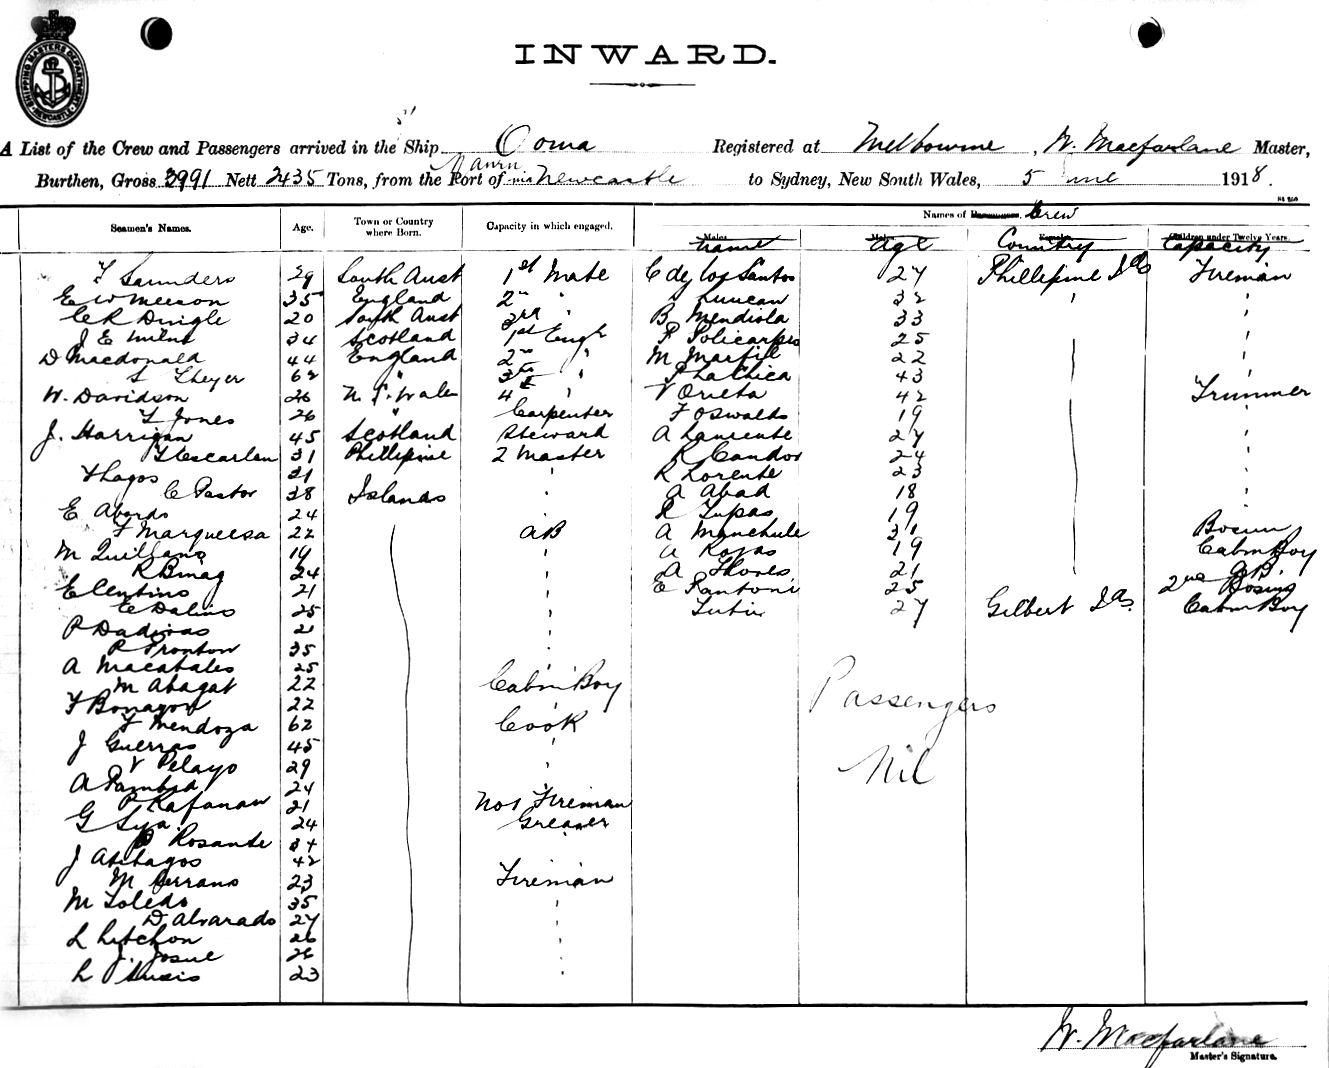 SHIPPING MASTERS DEPARTMENT NEWCASTLE
INWARD.
A List of the Crew and Passengers arrived in the Ship Ooma Registered at Melbourne, W. Macfarlane Master,
Burthen, Gross 2991 Nett 2435 Tons, from the Port of Nauru via Newcastle to Sydney, New South Wales, 5 June 1918.
Names of Crew
Seamen's Names. Age. Town or Country where Born. Capacity in which engaged. Name Age Country Capacity
Children under Twelve Years.
F Saunders 29 South Aust 1st Mate C de los Santos 27 Phillipine Ids Fireman
E W Meeson 35 England 2nd " Luncan 32 "
C R Dingle 20 South Aust 3rd " B Mendiola 33 "
J E Milne 34 Scotland 1st Engr P Policarpio 25 "
D Macdonald 44 England 2nd " M Marfil 22 "
Theyer 62 " 3rd " 43
W. Davidson 26 N. S. Wales 4th V Orieta 42 Trimmer
F Jones 26 " Carpenter F Oswalds 19 "
J. Harrigan 45 Scotland Steward A Lauriente 27 "
F Escarlan 31 Phillipine 2 Master R Candor 24 "
F Lagos 31 R Lorente 23 "
C Pastor 38 Islands " A Abad 18 "
E Abordo 24 R Tupas 19
F Marqueesa 22 AB A Manchule 21 Bosun
M Quillano 19 " A Rojas 19 Cabin Boy
R Binag 24 " A Flores 21 A.B.
E Clentino 21 " E Rantoni 25 2nd Bosun
E Dalino 25 " Tutu 27 Gilbert Ids Cabin Boy
P Dadivas 21 "
P Fronton 35 "
A Macabales 25 "
M Abagat 22 Cabin Boy
F Bonagon 22 "
F Mendoza 62 Cook
J Guerras 45 "
V Pelayo 29 "
A Pambid 24
P Rafanan 21 No 1 Fireman
G Sya 24 Greaser
P Rosante 34
J Atchagos 42
M Serrano 23 Fireman
M Toledo 35 "
D Alvarado 27 "
L Litchon 26 "
J. Josue 26 "
L 23 "
Passengers
Nil
W. Macfarlane
Master's Signature.